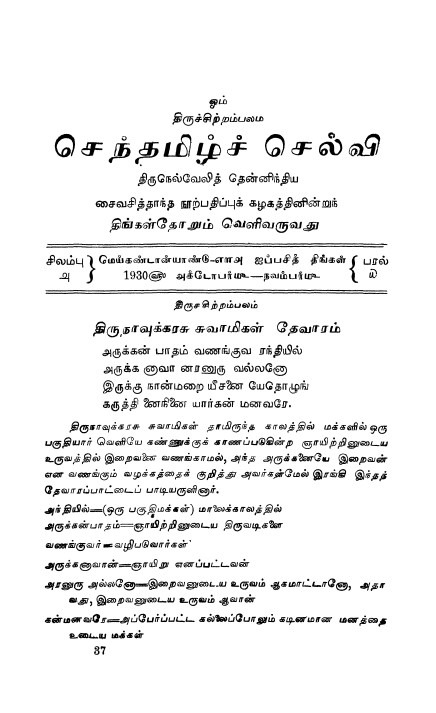 ஓம்
திருச்சிற்றம்பலம
செந்தமிழ்ச் செல்வி
திருநெல்வேலித் தென்னிந்திய
சைவசித்தாந்த நூற்பதிப்புக் கழகத்தினின்றுந்
திங்கள்தோறும் வெளிவருவது
சிலம்பு மெய்கண்டான்யாண்டு-எ௱அ ஐப்பசித் திங்கள் பரல்
அ 1930௵ அக்டோபர்௴—நவம்பர்௴ ௰
திருசசிற்றம்பலம்
திருநாவுக்கரசு சுவாமிகள் தேவாரம்
அருக்கன் பாதம் வணங்குவ ரந்தியில்
அருக்க னாவா னரனுரு வல்லனோ
இருக்கு நான்மறை யீசனை யேதொழுங்
கருத்தி னைநினை யார்கன் மனவரே.
திருநாவுக்கரசு சுவாமிகள் தாமிருந்த காலத்தில் மக்களில் ஒரு
பகுதியார் வெளியே கண்ணுக்குக் காணப்படுகின்ற ஞாயிற்றினுடைய
உருவத்தில் இறைவனை வணங்காமல், அந்த அருக்கனையே இறைவன்
என வணங்கும் வழக்கத்தைக் குறித்து அவர்கள்மேல் இரங்கி இந்தத்
தேவாரப்பாட்டைப் பாடியருளினார்.
அந்தியில்—(ஒரு பகுதிமக்கள்) மாலைக்காலத்தில்
அருக்கன்பாதம்—ஞாயிற்றினுடைய திருவடிகளை
வணங்குவர்—வழிபடுவார்கள்
அருக்கனாவான்—ஞாயிறு எனப்பட்டவன்
அரனுரு அல்லனோ—இறைவனுடைய உருவம் ஆகமாட்டானோ, அதா
வது, இறைவனுடைய உருவம் ஆவான்
கன்மனவரே—அப்பேர்ப்பட்ட கல்லைப்போலும் கடினமான மனத்தை
உடைய மக்கள்
37